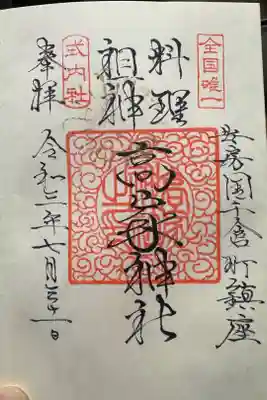 全国唯一
安房国千倉町鎮座
料理
祖神
高家神社
式内社
奉拝
令和二年七月三十一日